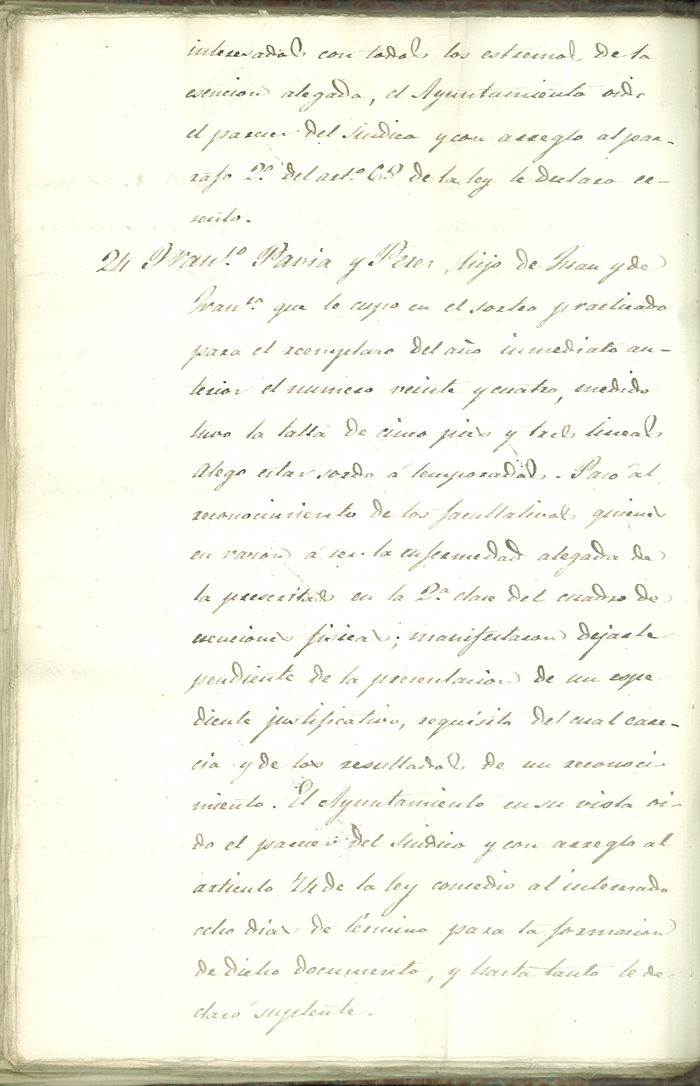 interesados con todos los estremos de la
esencion alegada, el Ayuntamiento oido
el parecer del Sindico y con arreglo al par-
rafo 2º del artº 65 de la ley le declaro es-
sento.
24 Franco. Pavia y Peres, hijo de Juan y de
Franca que le cupo en el sorteo practicado
para el reemplazo del año inmediato an-
terior el numero veinte y cuatro, medido
tuvo la talla de cinco pies y tres lineas
Alego estar sordo á temporadas. Pasó al
reconocimiento de los facultativos quienes
en razon á ser la enfermedad alegada de
la prescritas en la 2ª clase del cuadro de
esenciones fisicas; manifestaron dejarle
pendiente de la presentacion de un espe
diente justificativo, requisito del cual care-
cia y de los resultados de un reconoci
miento. El Ayuntamiento en su vista oi-
do el parecer del Sindico y con arreglo al
articulo 74 de la ley concedio al interesado
ocho dias de término para la formacion
de dicho documento, y hasta tanto le de
claró suplente.